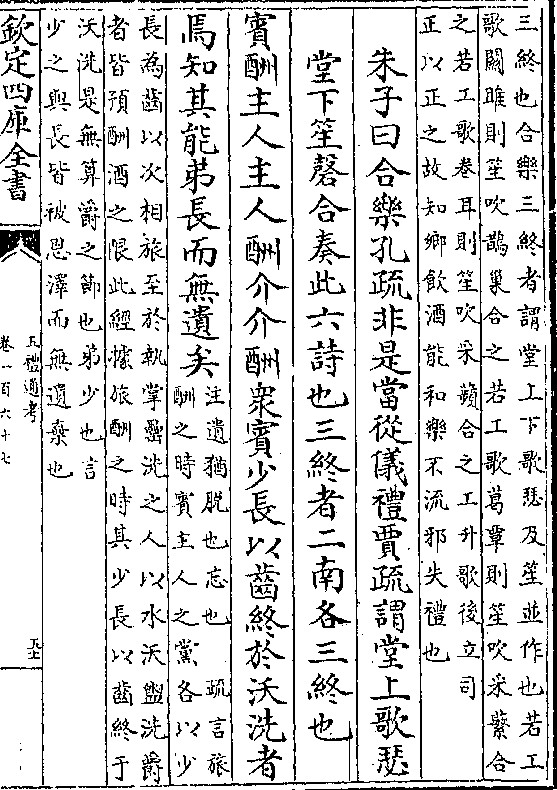 三終也合樂三終者謂堂上下歌瑟及笙並作也若工
歌關雎則笙吹鵲巢合之若工歌葛覃則笙吹采蘩合
之若工歌卷耳則笙吹采蘋合之工升歌後立司
正以正之故知鄉飲酒能和樂不流邪失禮也
朱子曰合樂孔疏非是當從儀禮賈疏謂堂上歌瑟
堂下笙磬合奏此六詩也三終者二南各三終也
賓酬主人主人酬介介酬衆賓少長以齒終於沃洗者
焉知其能弟長而無遺矣
注遺猶脱也忘也 疏言旅
酬之時賓主人之黨各以少
長為齒以次相旅至於執掌罍洗之人以水沃盥洗爵
者皆預酬酒之限此經據旅酬之時其少長以齒終于
沃洗是無算爵之節也弟少也言
少之與長皆被恩澤而無遺棄也
欽定四庫全書
五禮通考
卷一百六十七